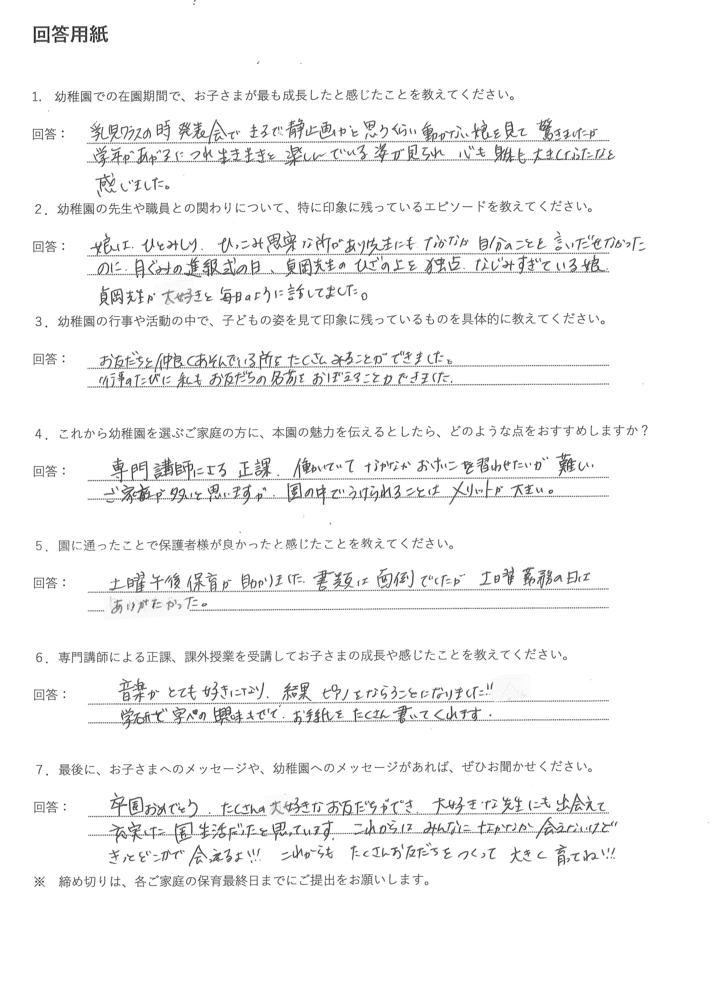 回答用紙
1. 幼稚園での在園期間で、お子さまが最も成長したと感じたことを教えてください。
回答： 乳児クラスの時 発表会で まるで静止画かと思うくらい 動かない娘を見て 驚きましたが
学年があがるにつれ 生き生きと 楽しんでいる 姿が見られ 心も 身体も 大きくなったなと
感じました。
２．幼稚園の先生や職員との関わりについて、特に印象に残っているエピソードを教えてください。
回答： 娘は、ひとみしり、ひっこみ思案な所があり先生にも なかなか 自分のことを 言いだせなかった
のに 月ぐみの進級式の日、貞岡先生の ひざの上を 独占、なじみすぎている娘。
貞岡先生が 大好きと 毎日のように話してました。
３．幼稚園の行事や活動の中で、子どもの姿を見て印象に残っているものを具体的に教えてください。
回答： お友だちと仲良くあそんでいる所を たくさん みることができました。
行事のたびに 私も お友だちの名前を おぼえることができました。
４．これから幼稚園を選ぶご家庭の方に、本園の魅力を伝えるとしたら、どのような点をおすすめしますか？
回答： 専門講師による 正課、働いていて なかなか おけいこを 習わせたいが 難しい
ご家庭が多いと思いますが、園の中でうけられることは メリットが 大きい。
５．園に通ったことで保護者様が良かったと感じたことを教えてください。
回答： 土曜午後保育が 助かりました。書類は 面倒でしたが 土曜 勤務の日は
ありがたかった。
６．専門講師による正課、課外授業を受講してお子さまの成長や感じたことを教えてください。
回答： 音楽が とても 好きになり、結果 ピアノをならうことになりました!!
学研で 字への 興味も でて、お手紙を たくさん 書いてくれます。
７．最後に、お子さまへのメッセージや、幼稚園へのメッセージがあれば、ぜひお聞かせください。
回答： 卒園おめでとう。たくさんの大好きなお友だちができ、大好きな先生にも 出会えて
充実した 園生活だったと思っています。これからは みんなに なかなか 会えないけど
きっとどこかで 会えるよ!!! これからも たくさんお友だちを つくって 大きく 育ってね!!!
※　締め切りは、各ご家庭の保育最終日までにご提出をお願いします。